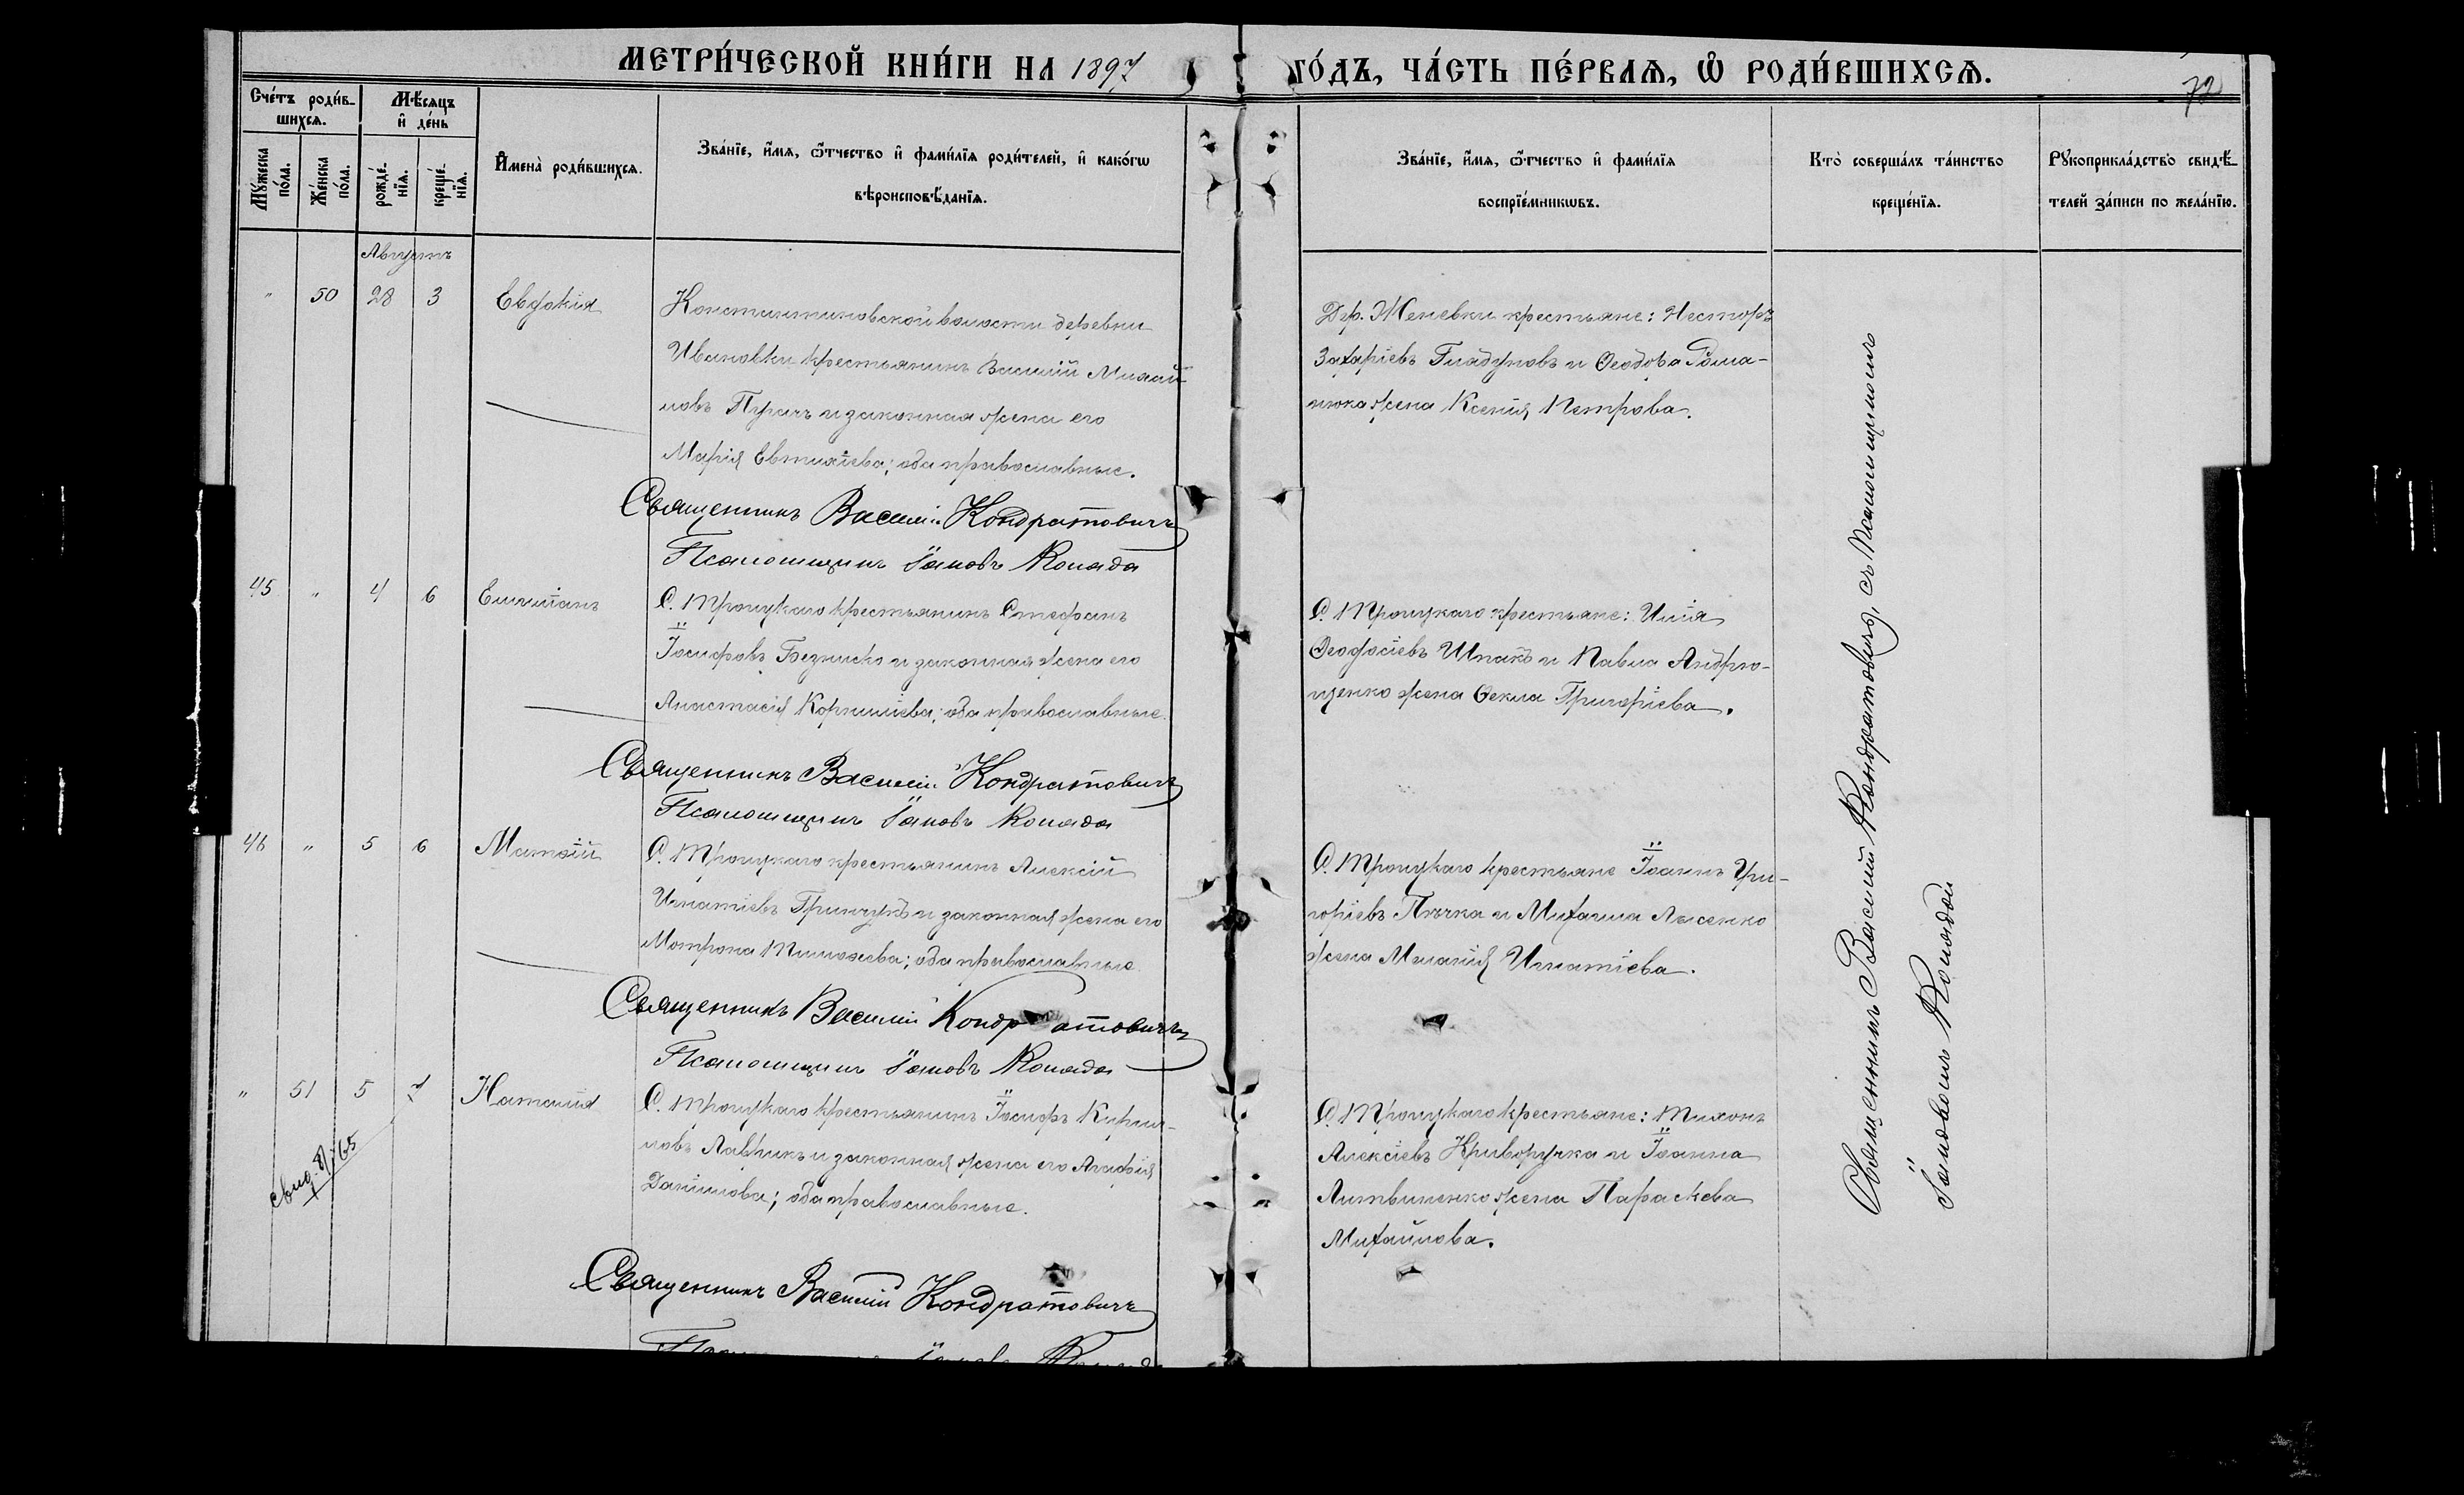 МЕТРИ́ЧЕСКОЙ КНИ́ГИ НА 1897
ГО́ДЪ, ЧА́СТЬ ПЕ́РВАЯ, Ѡ҆ РОДИ́ВШИХСЯ.
72
Сче́тъ роди́в-
шихся.
Мѣ́сяцъ
и҆ де́нь
Мꙋ́жеска
по́ла.
Же́нска
по́ла.
рожде́-
нїя.
креще́-
нїя.
И҆мена̀ роди́вшихся.
Зва́нїе, и҆́мя, ѻ҆́тчество и҆ фами́лїя роди́телей, и҆ како́гѡ
вѣроисповѣ́данїя.
Зва́нїе, и҆́мя, ѻ҆́тчество и҆ фами́лїя
воспрїе́мникѡвъ.
Кто̀ соверша́лъ та́инство
креще́нїя.
Рꙋкоприкла́дство свидѣ́-
телей за́писи по жела́нїю.
Августъ
" 50 28 3 Евдокія
Константиновской волости деревни
Ивановки крестьянинъ Василій Михай-
ловъ и законная жена его
Марія Евтихіева; оба православные.
Священникъ Василій Кондратовичъ
Псаломщикъ Іаковъ Колада
Дер. Женевки крестьяне: Несторъ
Захаріевъ Гладуновъ и Ѳеодора Рома-
нюка жена Ксенія Петрова.
45 " 4 6 Емиліанъ
С. Троицкаго крестьянинъ Стефанъ
Іосифовъ и законная жена его
Анастасія Корниліева; оба православные.
Священникъ Василій Кондратовичъ
Псаломщикъ Іаковъ Колада
С. Троицкаго крестьяне: Илія
Ѳеодосіевъ Шпакъ и Павла Андрю-
щенко жена Ѳекла Григоріева.
46 " 5 6 Матѳій
С. Троицкаго крестьянинъ Алексій
Игнатіевъ Гринчукъ и законная жена его
Матрона Тимоѳеева; оба православные.
Священникъ Василій Кондратовичъ
Псаломщикъ Іаковъ Колада
С. Троицкаго крестьяне Іоаннъ Гри-
горіевъ и Михаила Лысенко
жена Меланія Игнатіева.
" 51 5 7 Наталія
свид. 8/I 65
С. Троицкаго крестьянинъ Іосифъ Кирил-
ловъ Лаврикъ и законная жена его Агафія
Даніилова; оба православные.
Священникъ Василій Кондратовичъ
С. Троицкаго крестьяне: Тихонъ
Алексіевъ Криворучка и Іоанна
Литвиненко жена Параскева
Михайлова.
Священникъ Василій Кондратовичъ, съ Псаломщикомъ
Іаковомъ Коладой